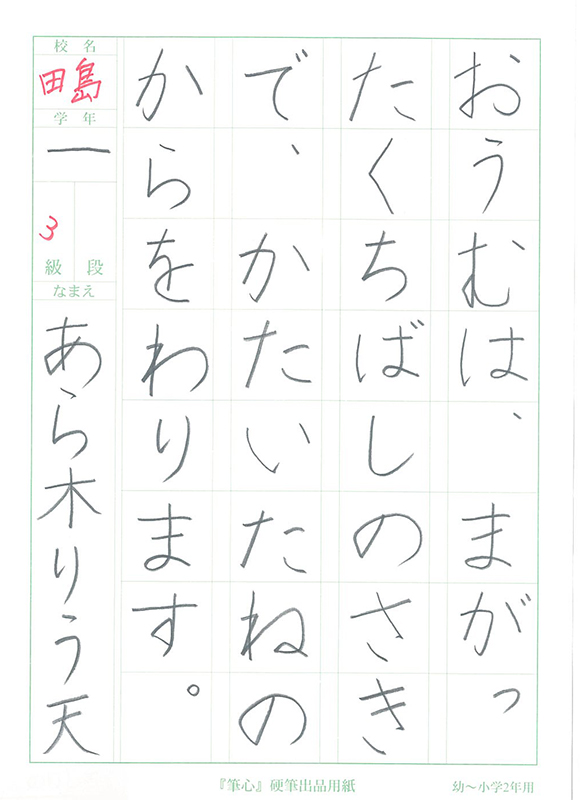 おうむは、まがっ
たくちばしのさき
で、かたいたねの
からをわります。
校名
田島
学年
一
3
級 段
なまえ
あら木りう天
『筆心』硬筆出品用紙
幼～小学2年用